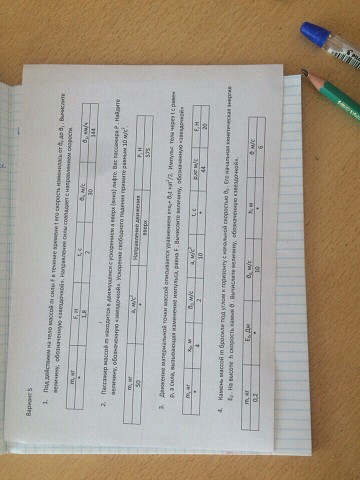 Вариант 5
1. Под действием на тело массой m силы F в течение времени t его скорость изменилась от ϑ₀ до ϑ₁. Вычислите
величину, обозначенную «звездочкой». Направление силы совпадает с направлением скорости.
m, кг F, Н t, с ϑ₀, м/с ϑ₁, км/ч
* 1,8 2 30 144
2. Пассажир массой m находится в движущемся с ускорением a вверх (вниз) лифте. Вес пассажира P. Найдите
величину, обозначенную «звездочкой». Ускорение свободного падения примите равным 10 м/с².
m, кг a, м/с² Направление движения P, Н
50 * вверх 575
3. Движение материальной точки массой описывается уравнением x=x₀+ ϑ₀t +at²/2. Импульс тела через t с равен
p, а сила, вызывающая изменение импульса, равна F. Вычислите величину, обозначенную «звездочкой»
m, кг x₀, м ϑ₀, м/с a, м/с² t, с p,кг м/с F, Н
* 4 2 10 * 44 20
4. Камень массой m бросили под углом к горизонту с начальной скоростью ϑ₀. Его начальная кинетическая энергия
На высоте h скорость камня ϑ. Вычислите величину, обозначенную «звездочкой».
m, кг Дж ϑ₀, м/с h, м ϑ, м/с
0,2 * 10 * 6